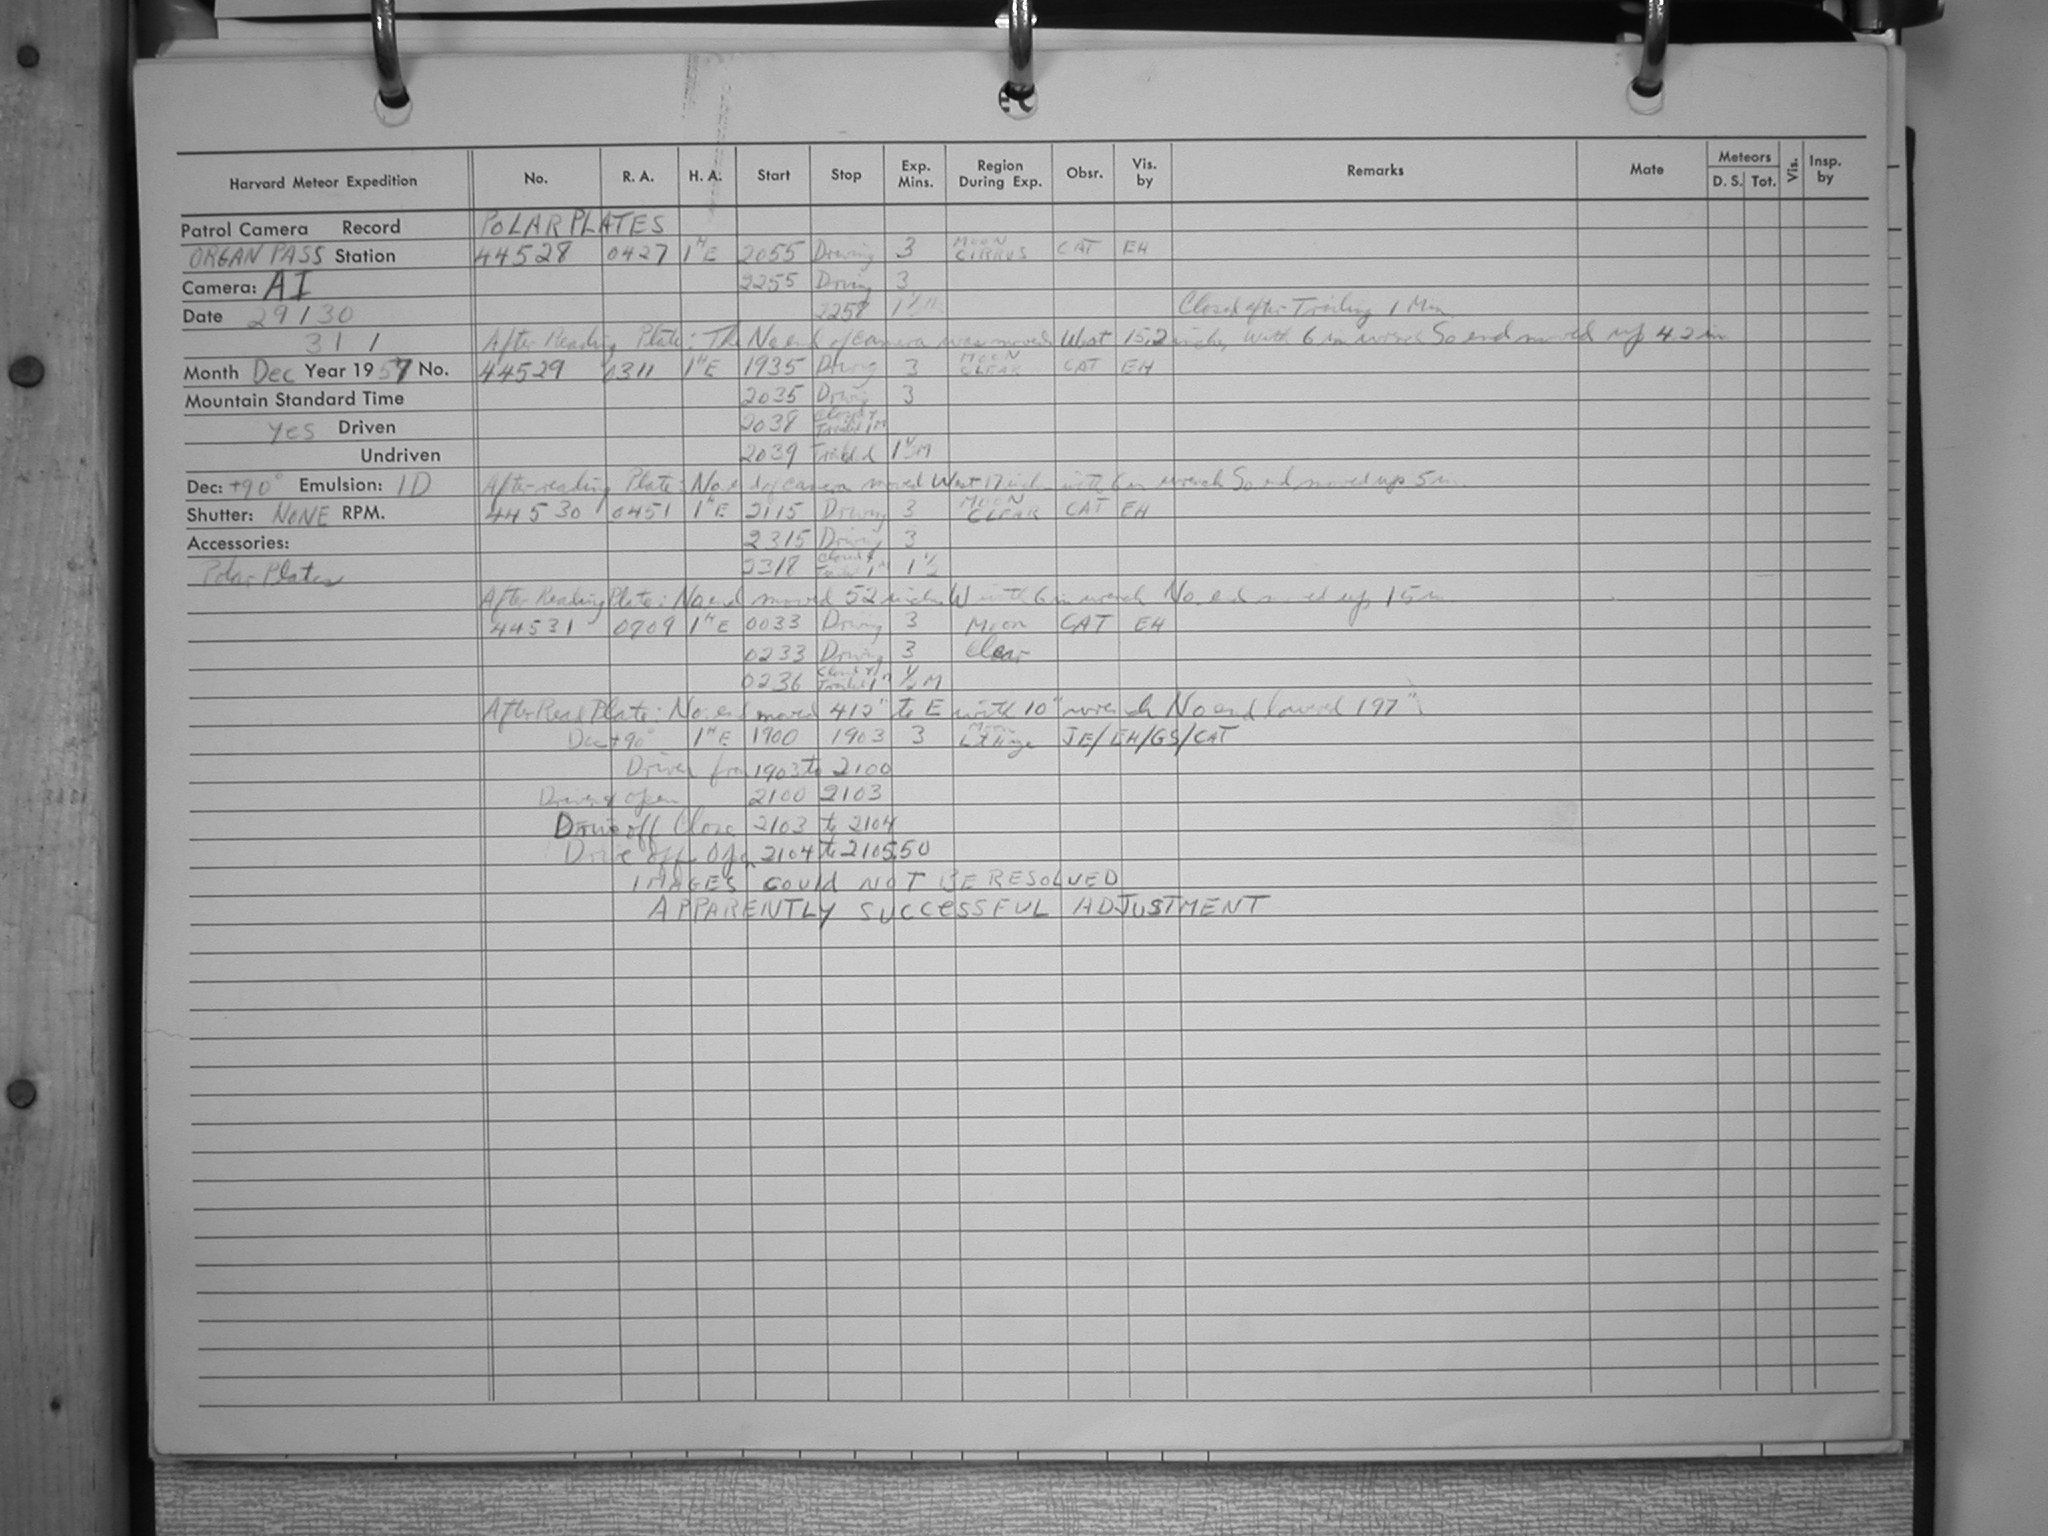 Harvard Meteor Expedition No. R. A. H. A. Start Stop Exp. Mins. Region During Exp. Obsr. Vis. by Remarks Mate Meteors D. S. Tot. Vis. Insp. by
Patrol Camera Record POLAR PLATES
ORGAN PASS Station 44528 0427 1ᴴE 2055 Driving 3 MOON CIRRUS CAT EH
Camera: AI 2255 Driving 3
Date 29/30 2258 Closed after Trailing 1 Min
31 1 After Reading Plate: The No end of camera was moved West 15.2 inches with 6 in wrench So end moved up 4.2 in
Month Dec Year 1957 No. 44529 0311 1ᴴE 1935 Driving 3 MOON CLEAR CAT EH
Mountain Standard Time 2035 Driving 3
Yes Driven 2038 Closed &
Undriven 2039 Trailed 1½M
Dec: +90° Emulsion: ID After reading Plate: No end of camera moved West 17 inch with 6 in wrench So end moved up 5 in
Shutter: NONE RPM. 44530 0451 1ᴴE 2115 Driving 3 MOON CLEAR CAT EH
Accessories: 2315 Driving 3
Polar Plates 2318 Closed & Trailed 1ᴹ 1½
After Reading Plate: No end moved 52 inches W with 6 in wrench No end moved up 15 in
44531 0909 1ᴴE 0033 Driving 3 Moon CAT EH
0233 Driving 3 Clear
0236 Closed & Trailed 1ᴹ ½M
After Read Plate: No. end moved 412" to E with 10" wrench No end lowered 197"
Dec +90° 1ᴴE 1900 1903 3 JE/EH/GS/CAT
Driven from 1903 to 2100
Driven & open 2100 2103
Drive off Close 2103 to 2104
Drive off Open 2104 to 2105.50
IMAGES COULD NOT BE RESOLVED
APPARENTLY SUCCESSFUL ADJUSTMENT